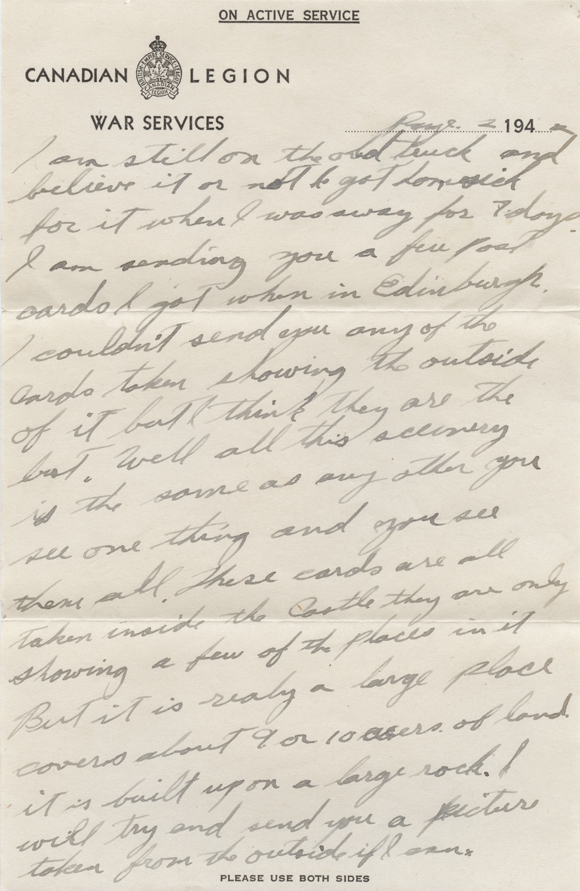 ON ACTIVE SERVICE
CANADIAN LEGION
WAR SERVICES
Page. 2 194
I am still on the old truck and
believe it or not I got homesick
for it when I was away for 7 days.
I am sending you a few post
cards I got when in Edinburgh.
I couldn't send you any of the
cards taken showing the outside
of it but I think they are the
best. Well all this scenery
is the same as any other you
see one thing and you see
them all. These cards are all
taken inside the Castle they are only
showing a few of the places in it
But it is realy a large place
covers about 9 or 10 acers of land
it is built upon a large rock. I
will try and send you a picture
taken from the outside if I can.
PLEASE USE BOTH SIDES